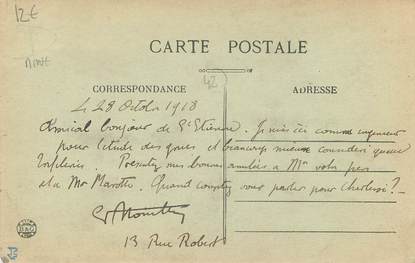 12€
CARTE POSTALE
42
CORRESPONDANCE
ADRESSE
Le 28 Octobre 1918
Amical bonjour de St Etienne. Je suis ici comme ingénieur
pour l'étude des grues et beaucoup mieux considéré que
Présentez mes bonnes amitiés à Mr votre père
et à Mr Marotte. Quand comptez vous partir pour
13 Rue Robert